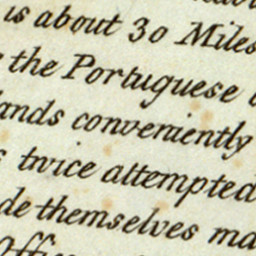 is about 30 Miles
the Portuguese
ands conveniently
twice attempted
de themselves ma